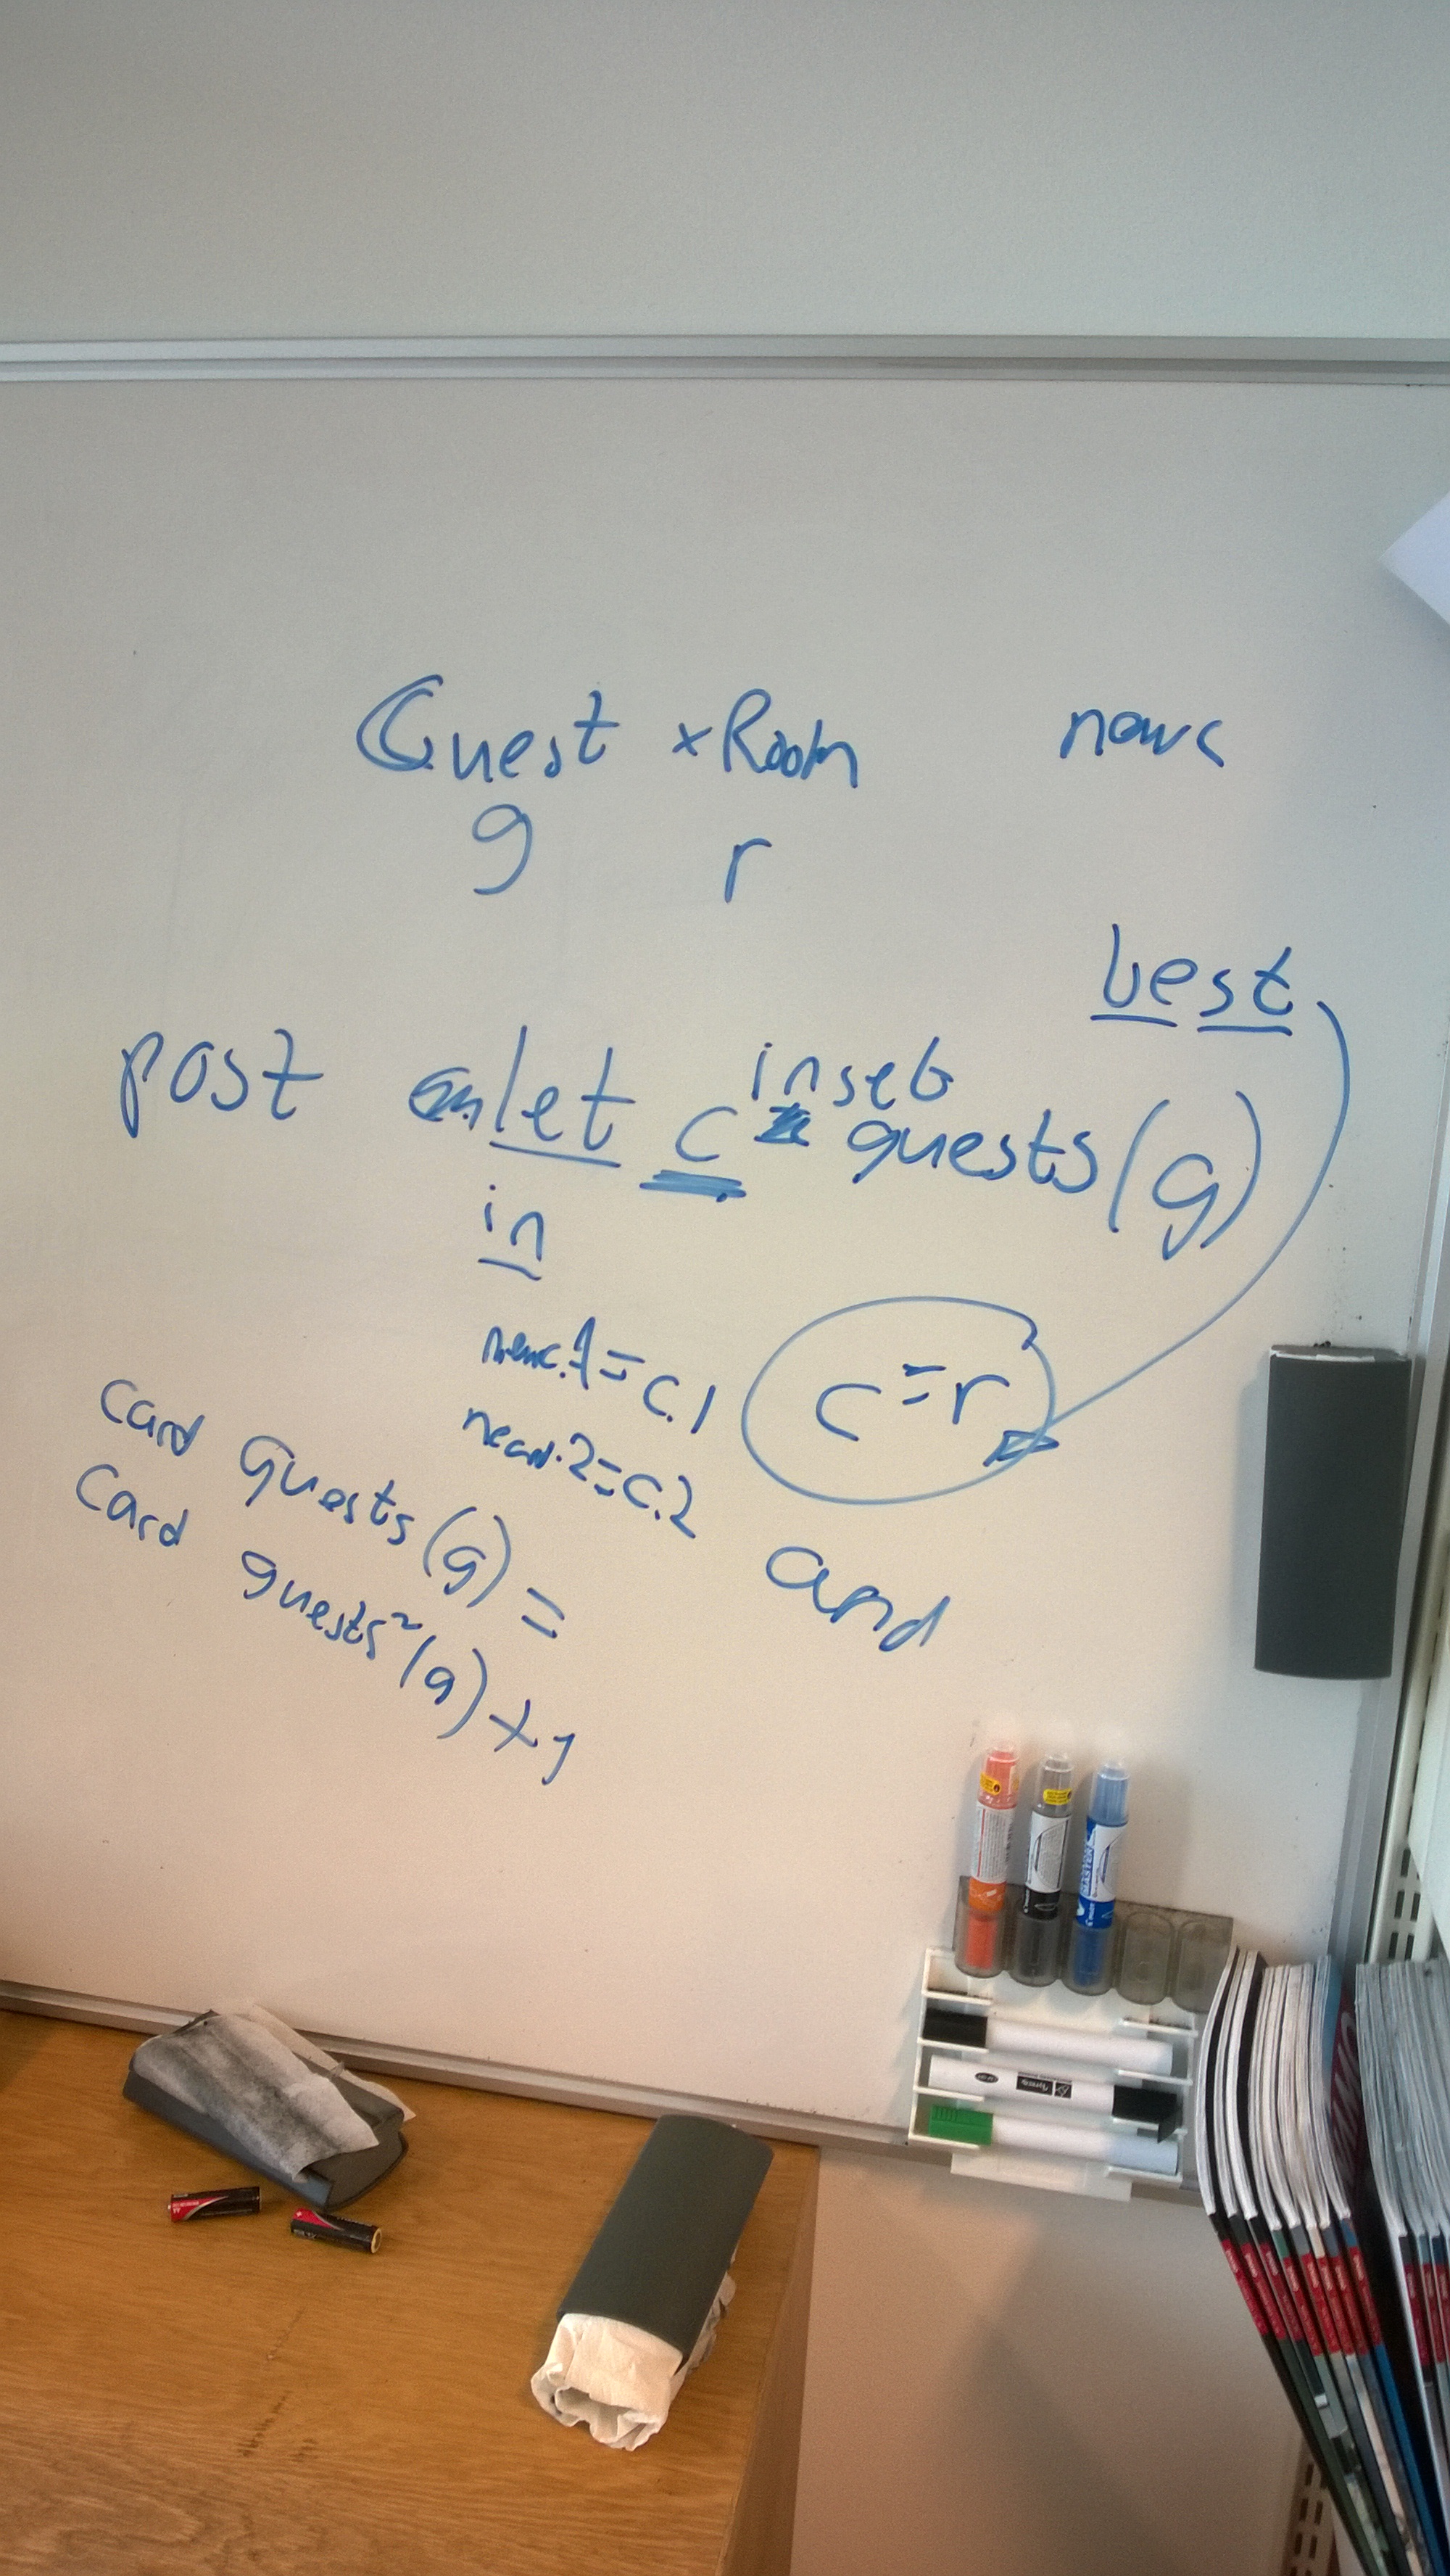 Guest × Room newc
g r
best
post let c in set guests(g)
in
newc.1 = c.1
c = r
newc.2 = c.2
and
card guests(g) =
card guests~(g) + 1
MASTER